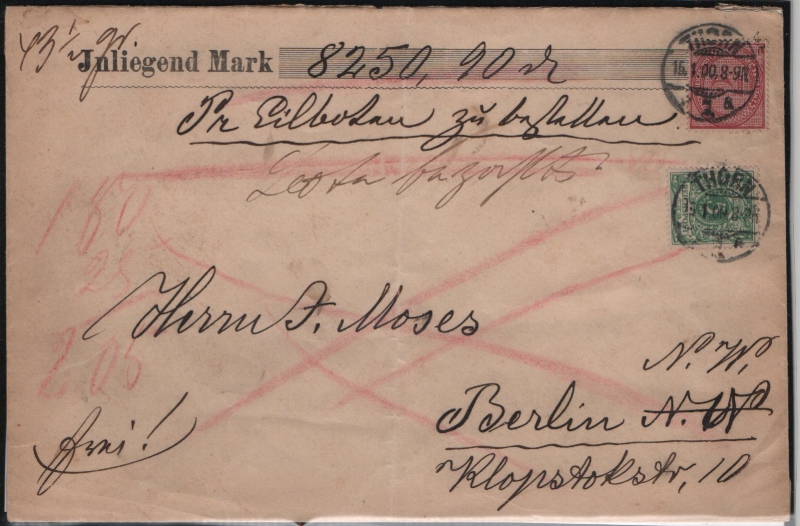 43½ gr
Inliegend Mark 8250,90 ₰
THORN
15.1.00.8-9V.
1 a
Pr Eilboten zu bestellen
bezahlt
THORN
180
25
2.05
Herrn J. Moses
N. W.
Berlin N. W
Klopstokstr, 10
frei!